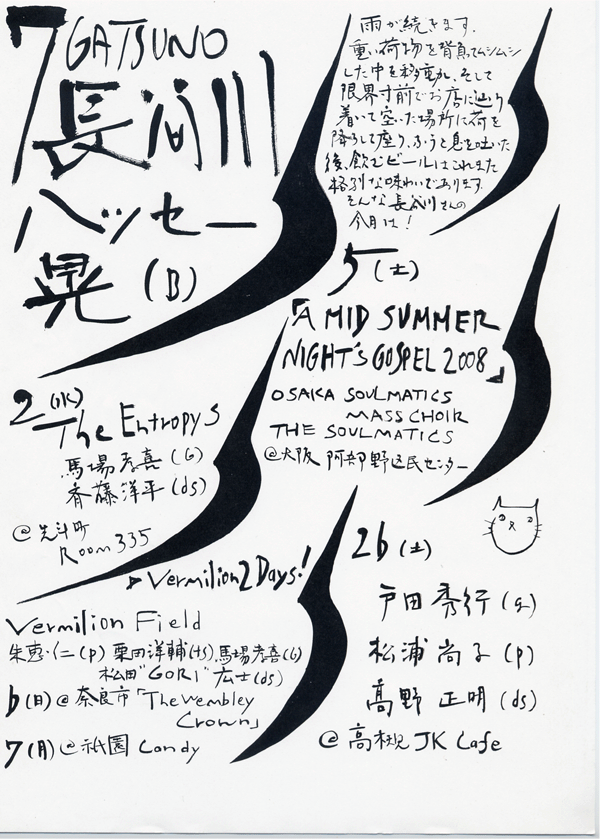 7 GATSUNO
長谷川
ハッセー
晃 (B)
雨が続きます.
重い荷物を背負ってムシムシ
した中を移動し、そして
限界寸前でお店に辿り
着いて空いた場所に荷を
降ろして座り、ふぅと息を吐いた
後、飲むビールはこれまた
格別な味わいであります.
そんな長谷川さんの
今月は!
2 (水)
The Entropys
馬場孝喜 (G)
斉藤洋平 (ds)
@ 先斗町
Room 335
5 (土)
「A MID SUMMER
NIGHT'S GOSPEL 2008」
OSAKA SOULMATICS
MASS CHOIR
THE SOULMATICS
@大阪 阿部野区民センター
▶ Vermilion 2 Days!
Vermilion Field
朱恵仁 (p) 栗田洋輔 (ts) 馬場孝喜 (G)
松田"GORI"広士 (ds)
6 (日) @ 奈良市「The Wembley
Crown」
7 (月) @ 祇園 Candy
26 (土)
戸田秀行 (g)
松浦尚子 (p)
高野正明 (ds)
@ 高槻 JK Cafe